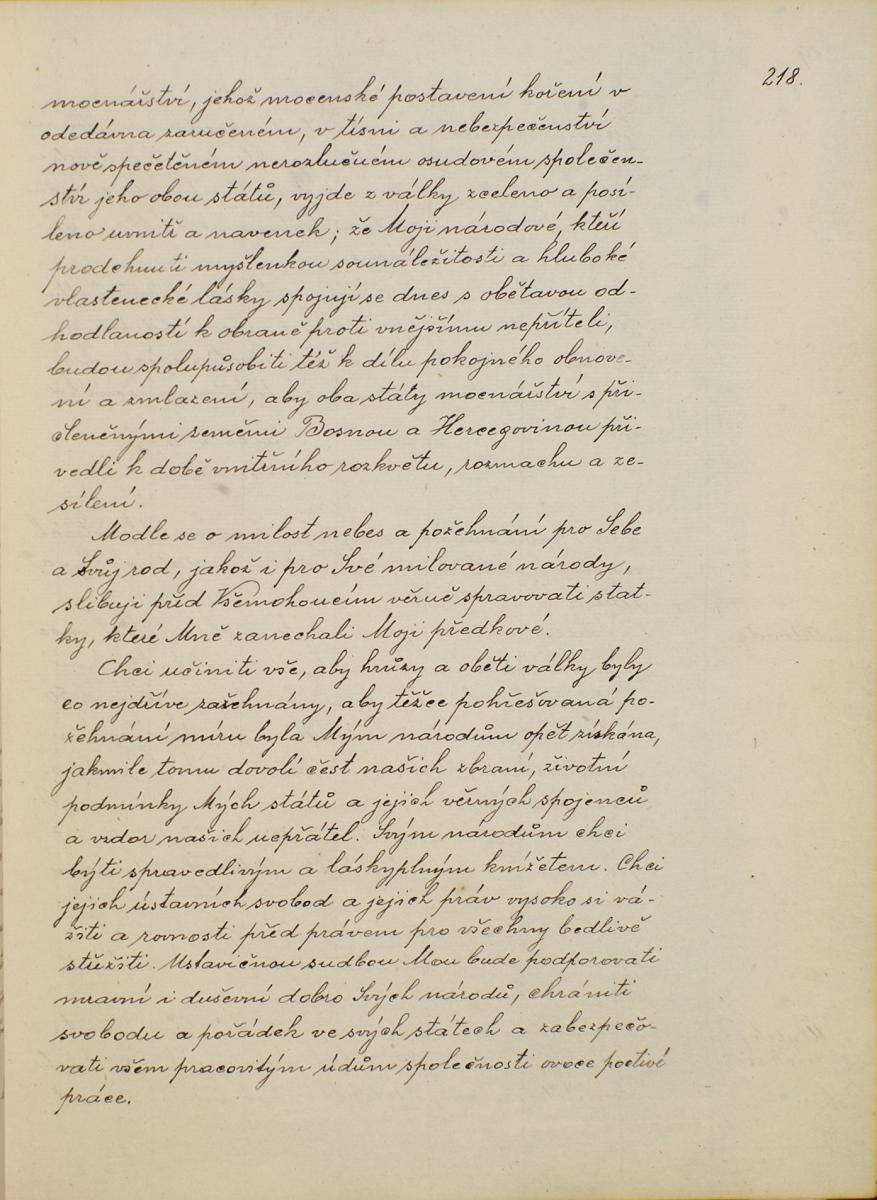 218.
mocnářství, jehož mocenské postavení koření v
odedávna zaručeném, v tísni a nebezpečenství
nově spečetěném nerozlučném osudovém společen-
ství jeho obou států, vyjde z války zceleno a posí-
leno uvnitř a navenek; že Moji národové, kteří
prodchnuti myšlenkou sounáležitosti a hluboké
vlastenecké lásky spojují se dnes s obětavou od-
hodlaností k obraně proti vnějšímu nepříteli,
budou spolupůsobiti též k dílu pokojného obnove-
ní a zmlazení, aby oba státy mocnářství s při-
členěnými zeměmi Bosnou a Hercegovinou při-
vedli k době vnitřního rozkvětu, rozmachu a ze-
sílení.
Modle se o milost nebes a požehnání pro Sebe
a Svůj rod, jakož i pro Své milované národy,
slibuji před Všemohoucím věrně spravovati stat-
ky, které Mně zanechali Moji předkové.
Chci učiniti vše, aby hrůzy a oběti války byly
co nejdříve zažehnány, aby těžce pohřešovaná po-
žehnání míru byla Mým národům opět získána,
jakmile tomu dovolí čest našich zbraní, životní
podmínky Mých států a jejich věrných spojenců
a vzdor našich nepřátel. Svým národům chci
býti spravedlivým a láskyplným knížetem. Chci
jejich ústavních svobod a jejich práv vysoko si vá-
žiti a rovnosti před právem pro všechny bedlivě
střežiti. Ustavičnou sudbou Mou bude podporovati
mravní i duševní dobro Svých národů, chrániti
svobodu a pořádek ve svých státech a zabezpečo-
vati všem pracovitým údům společnosti ovoce poctivé
práce.